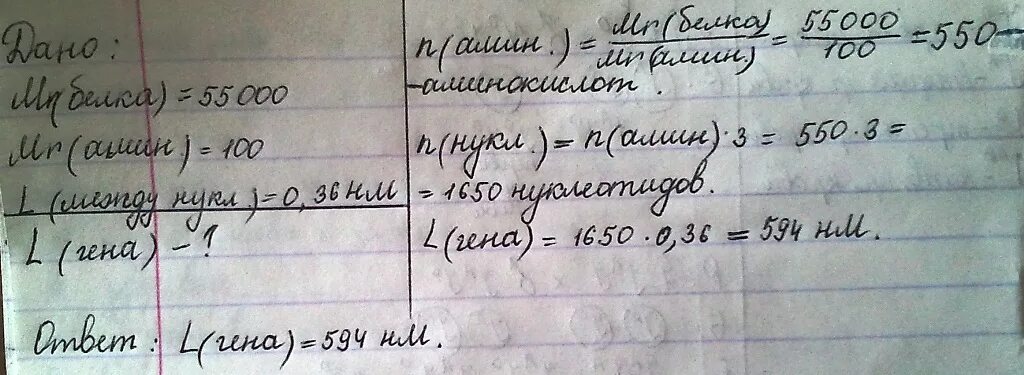 Дано:
Mr(белка) = 55000
Mr(амин.) = 100
L (между нукл.) = 0,36 нм
L (гена) - ?
n(амин.) = Mr(белка) / Mr(амин) = 55000 / 100 = 550 -
- аминокислот.
n(нукл.) = n(амин) · 3 = 550 · 3 =
= 1650 нуклеотидов.
L(гена) = 1650 · 0,36 = 594 нм.
Ответ: L(гена) = 594 нм.